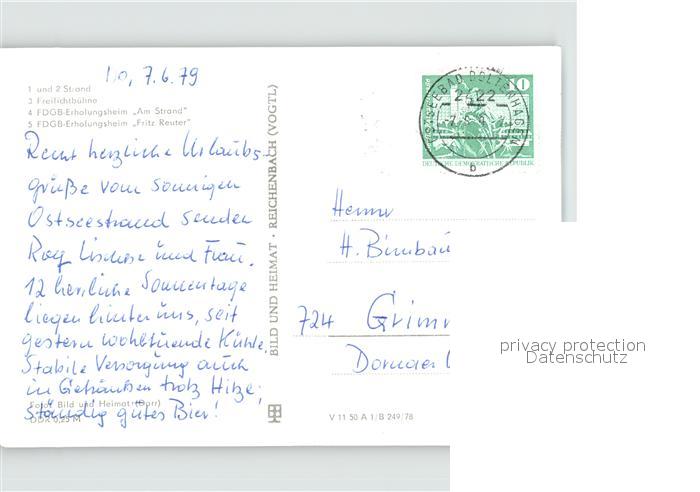 Do, 7.6.79
1 und 2 Strand
3 Freilichtbühne
4 FDGB-Erholungsheim „Am Strand"
5 FDGB-Erholungsheim „Fritz Reuter"
Recht herzliche Urlaubs-
grüße vom sonnigen
Ostseestrand senden
und Frau.
12 herrliche Sonnentage
liegen hinter uns, seit
gestern wohltuende Kühle.
Stabile Versorgung auch
in Getränken trotz Hitze,
Ständig gutes Bier!
Foto: Bild und Heimat (Dorr)
BILD UND HEIMAT · REICHENBACH (VOGTL)
10
OSTSEEBAD BOLTENHAGEN
2422
b
DEUTSCHE DEMOKRATISCHE REPUBLIK
Herrn
H. Birnbau
724 Grimm
Dornaer
V 11 50 A 1/B 249/78
privacy protection
Datenschutz